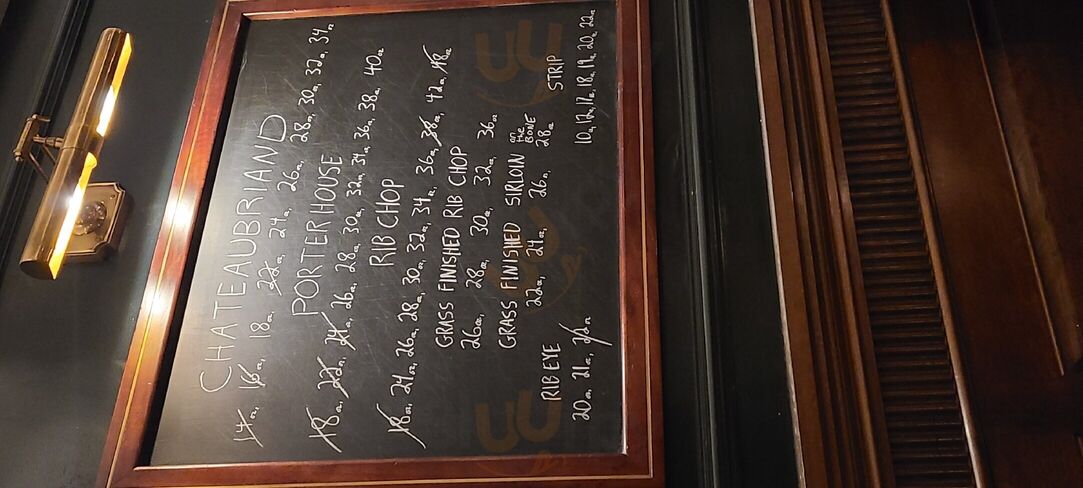 CHATEAUBRIAND
14oz, 16oz, 18oz, 22oz, 24oz, 26oz, 28oz, 30oz, 32oz, 34oz
PORTERHOUSE
18oz, 22oz, 24oz, 26oz, 28oz, 30oz, 32oz, 34oz, 36oz, 38oz, 40oz
RIB CHOP
18oz, 24oz, 26oz, 28oz, 30oz, 32oz, 34oz, 36oz, 38oz, 42oz, 48oz
GRASS FINISHED RIB CHOP
26oz, 28oz, 30oz, 32oz, 36oz
GRASS FINISHED SIRLOIN on the BONE
22oz, 24oz, 26oz, 28oz
RIBEYE STRIP
20oz, 21oz, 22oz 10oz, 12oz, 17oz, 18oz, 19oz, 20oz, 22oz